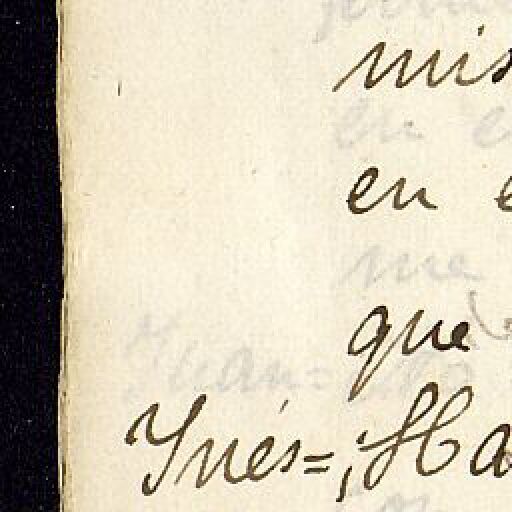 mis
en e
que
Inés=¡Ha